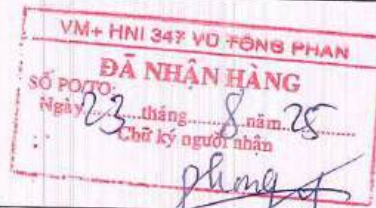 VM+ HNI 347 VŨ TÔNG PHAN
ĐÃ NHẬN HÀNG
SỐ PO/TO:
Ngày 23 tháng 8 năm 25
Chữ ký người nhận
phong